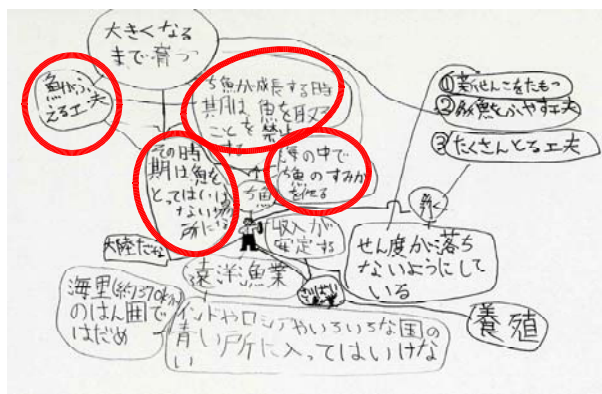 大きくなる
まで育つ
魚がふ
える工夫
ち魚が成長する時
期は魚を取る
ことを禁止
する
その時
期は魚を
とってはいけ
ない場
所にな
海の中で
ち魚のすみか
を作る
ち魚
①新せんさをたもつ
②魚をふやす工夫
③たくさんとる工夫
収入が
安定する
せん度が落ち
ないようにして
いる
大陸だな
遠洋漁業
さいばい
養殖
海里(約370km)
のはん囲で
はだめ
インドやロシアやいろいろな国の
青い所に入ってはいけな
い